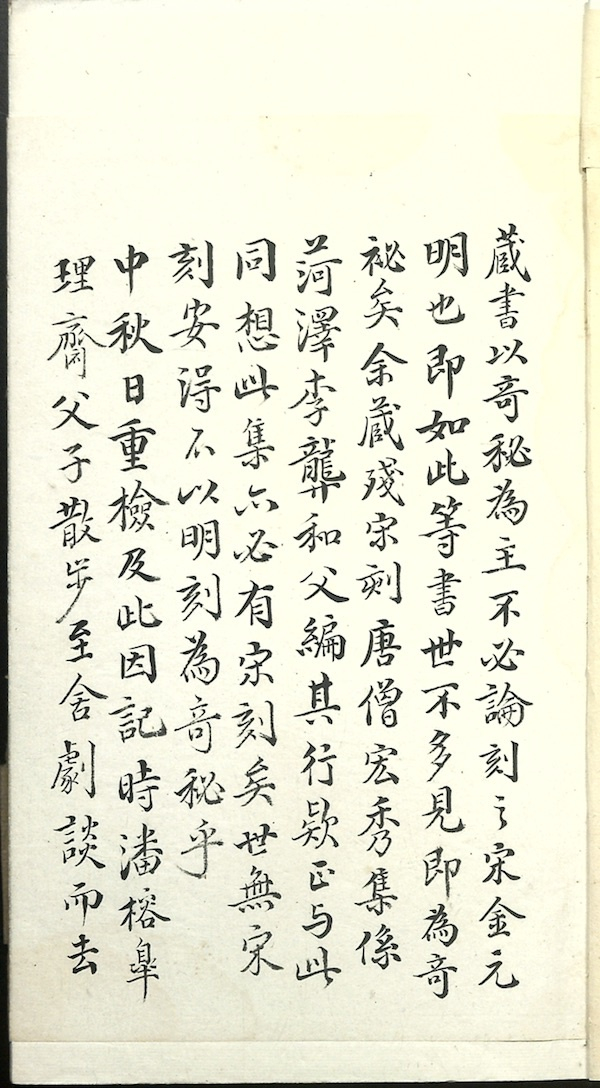 蔵書以竒秘為主不必論刻之宋金元
明也即如此等書世不多見即為竒
祕矣余蔵殘宋刻唐僧宏秀集係
菏澤李龏和父編其行欵正与此
同想此集亦必有宋刻矣世無宋
刻安淂不以明刻為竒秘乎
中秋日重檢及此因記時潘榕皋
理齋父子散步至舍劇談而去